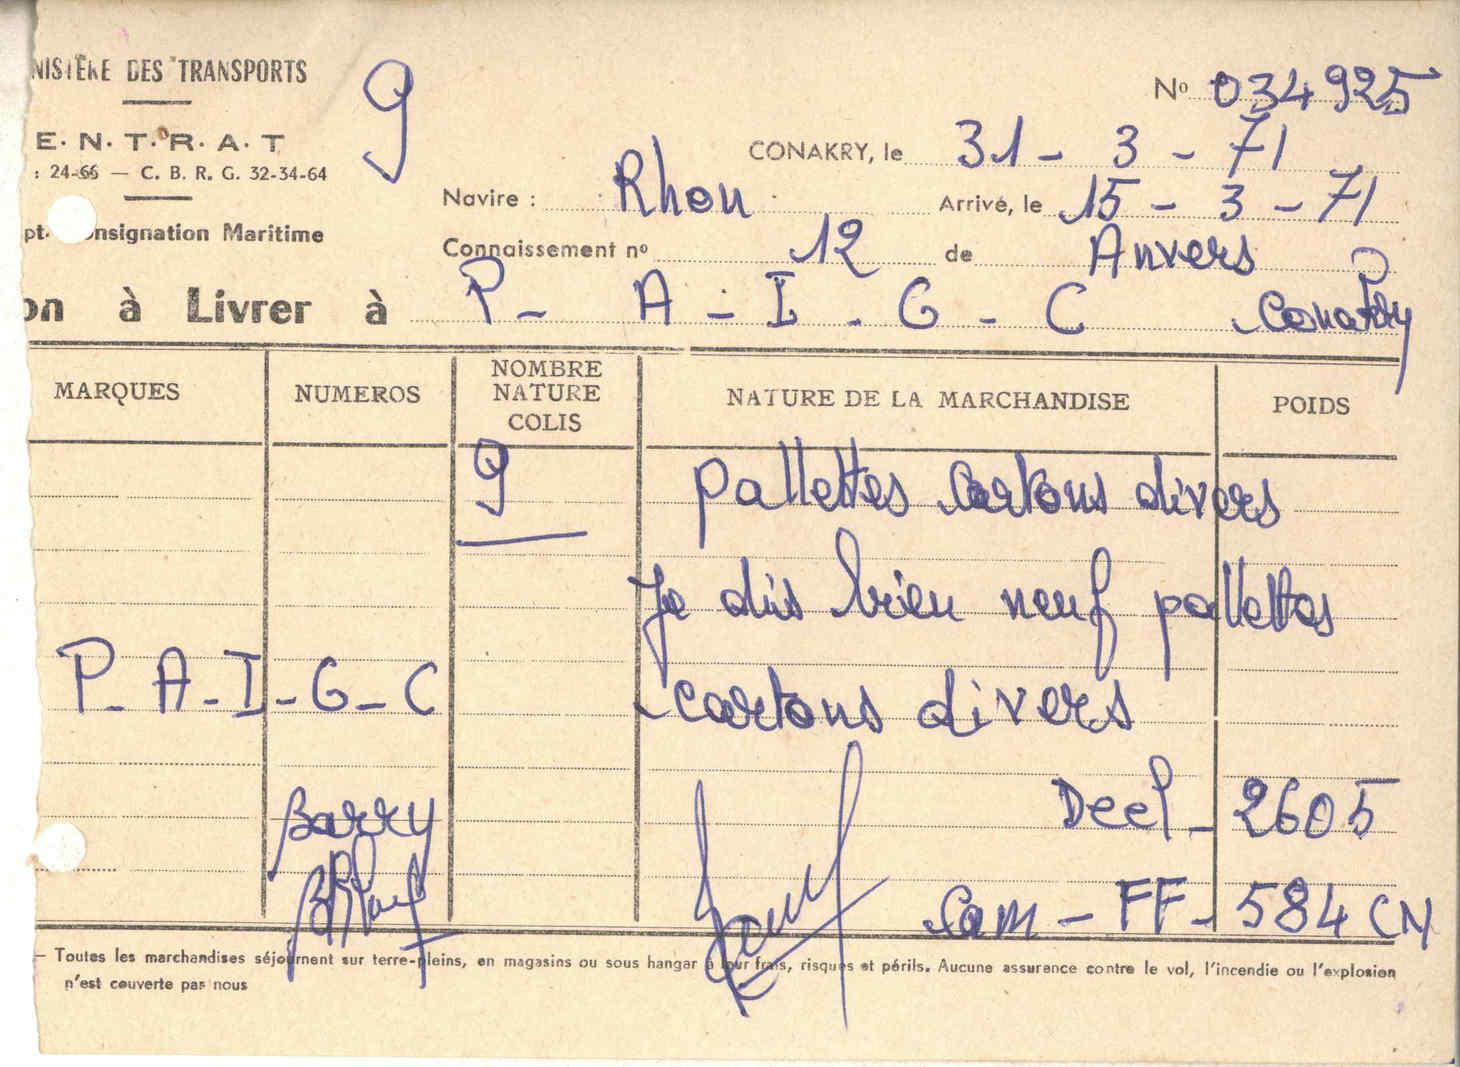 NISTÈRE DES TRANSPORTS
9
No 034925
E. N. T. R. A. T
CONAKRY, le 31 - 3 - 71
: 24-66 — C. B. R. G. 32-34-64
Navire : Rhon Arrivé, le 15 - 3 - 71
pt. onsignation Maritime
Connaissement no 12 de Anvers
on à Livrer à P - A - I - G - C Conakry
MARQUES NUMEROS NOMBRE NATURE COLIS NATURE DE LA MARCHANDISE POIDS
9 pallettes cartons divers
Je dis bien neuf pallettes
P - A - I - G - C cartons divers
Barry Decl - 2605
Cam - FF - 584 CN
— Toutes les marchandises séjournent sur terre-pleins, en magasins ou sous hangar à leur frais, risques et périls. Aucune assurance contre le vol, l'incendie ou l'explosion
n'est couverte par nous